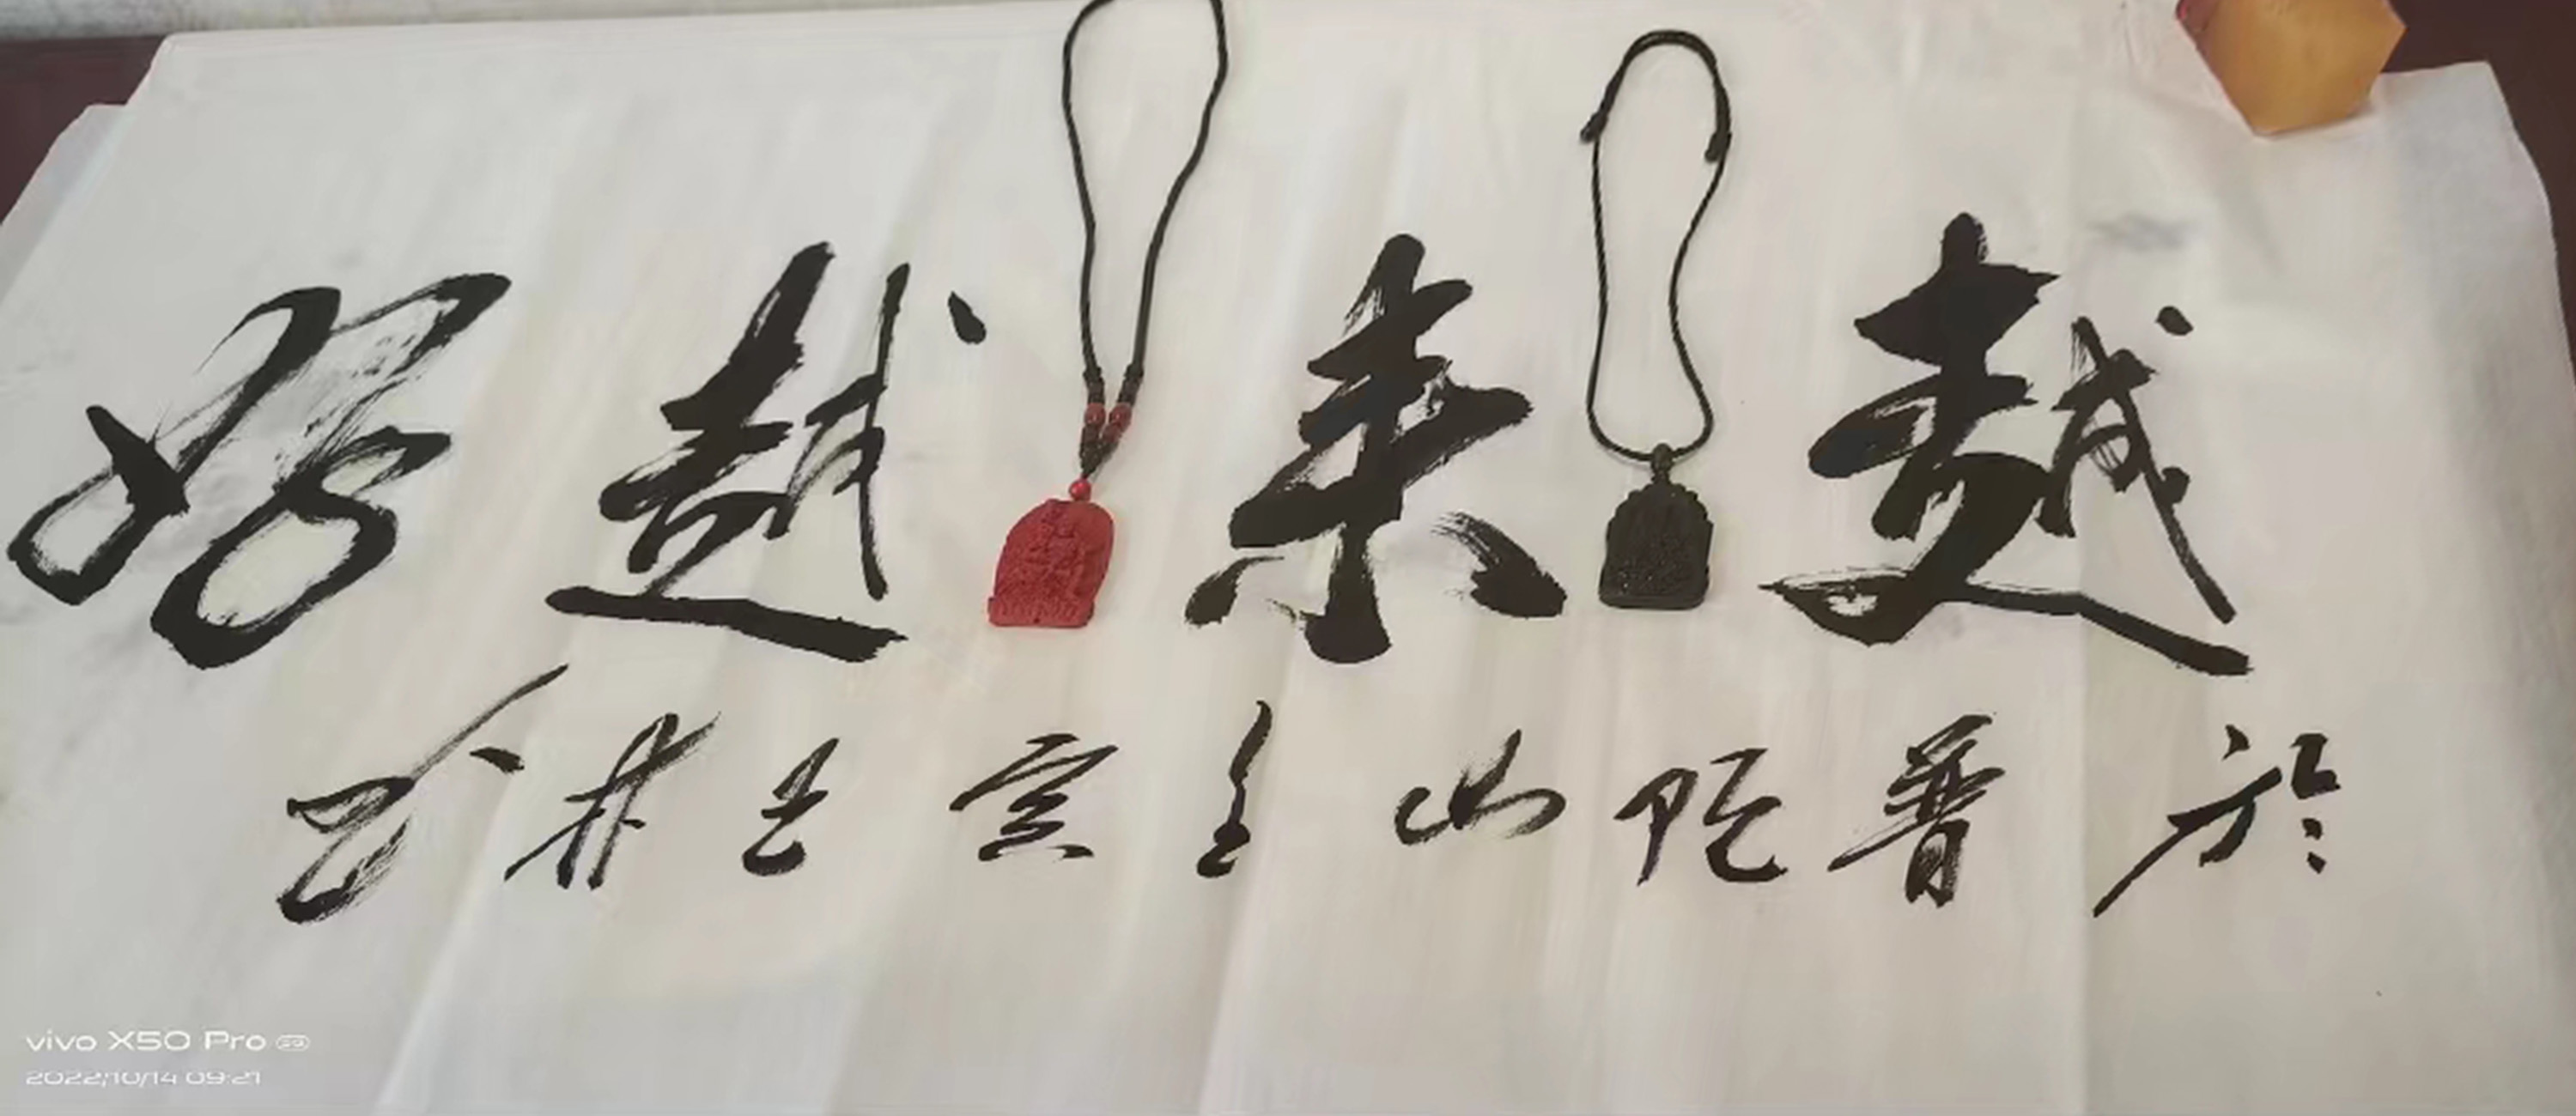 越来越好
於普陀山全宝玉林
vivo X50 Pro 5G
2022/10/14 09:21